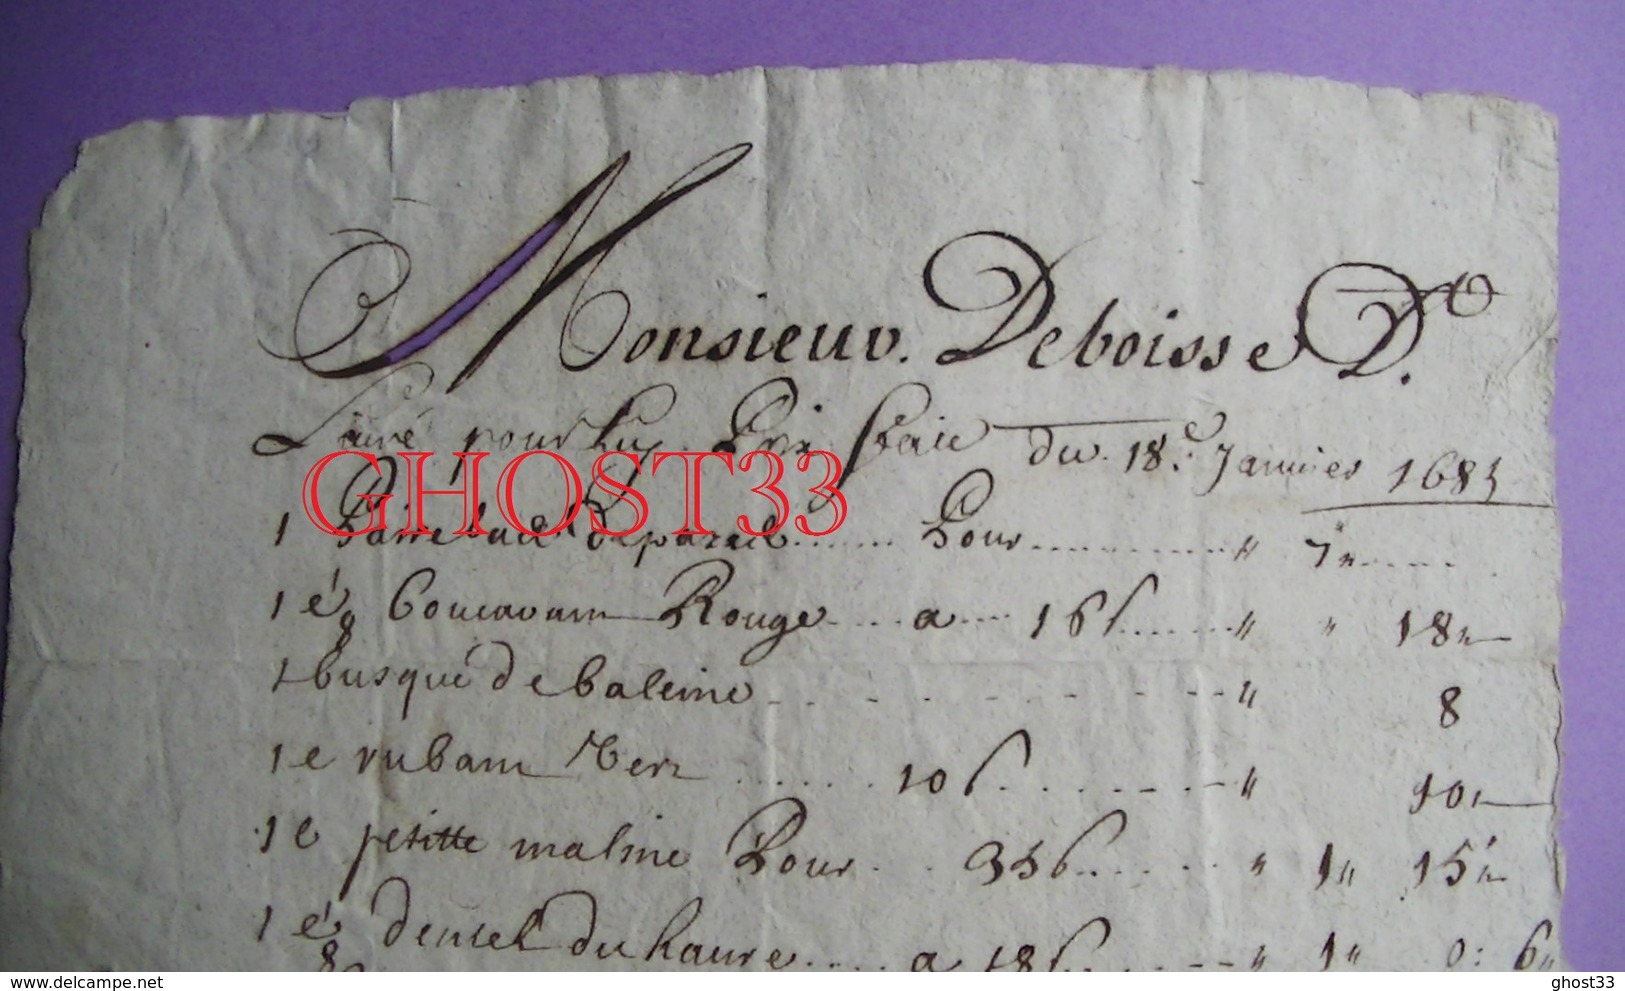 Monsieur. Deboisse D.
Livré pour luy Prix faic du. 18.e Janvier 1683
GHOST33
1 Paire bas d'eparac...... Pour............ " 7"......
1 é/8 Boucavam Rouge..... a.... 16 s....... " " 18"
1 busqué de baleine - - - - - - - - " 8
1 e rubam Verz ........ 10 s........ " 10"
1 e petitte maline Pour.. 35 s....... " 1" 15"
1 é/8 dentel du haure..... a 18 s..... " 1" 0: 6"
www.delcampe.net
ghost33